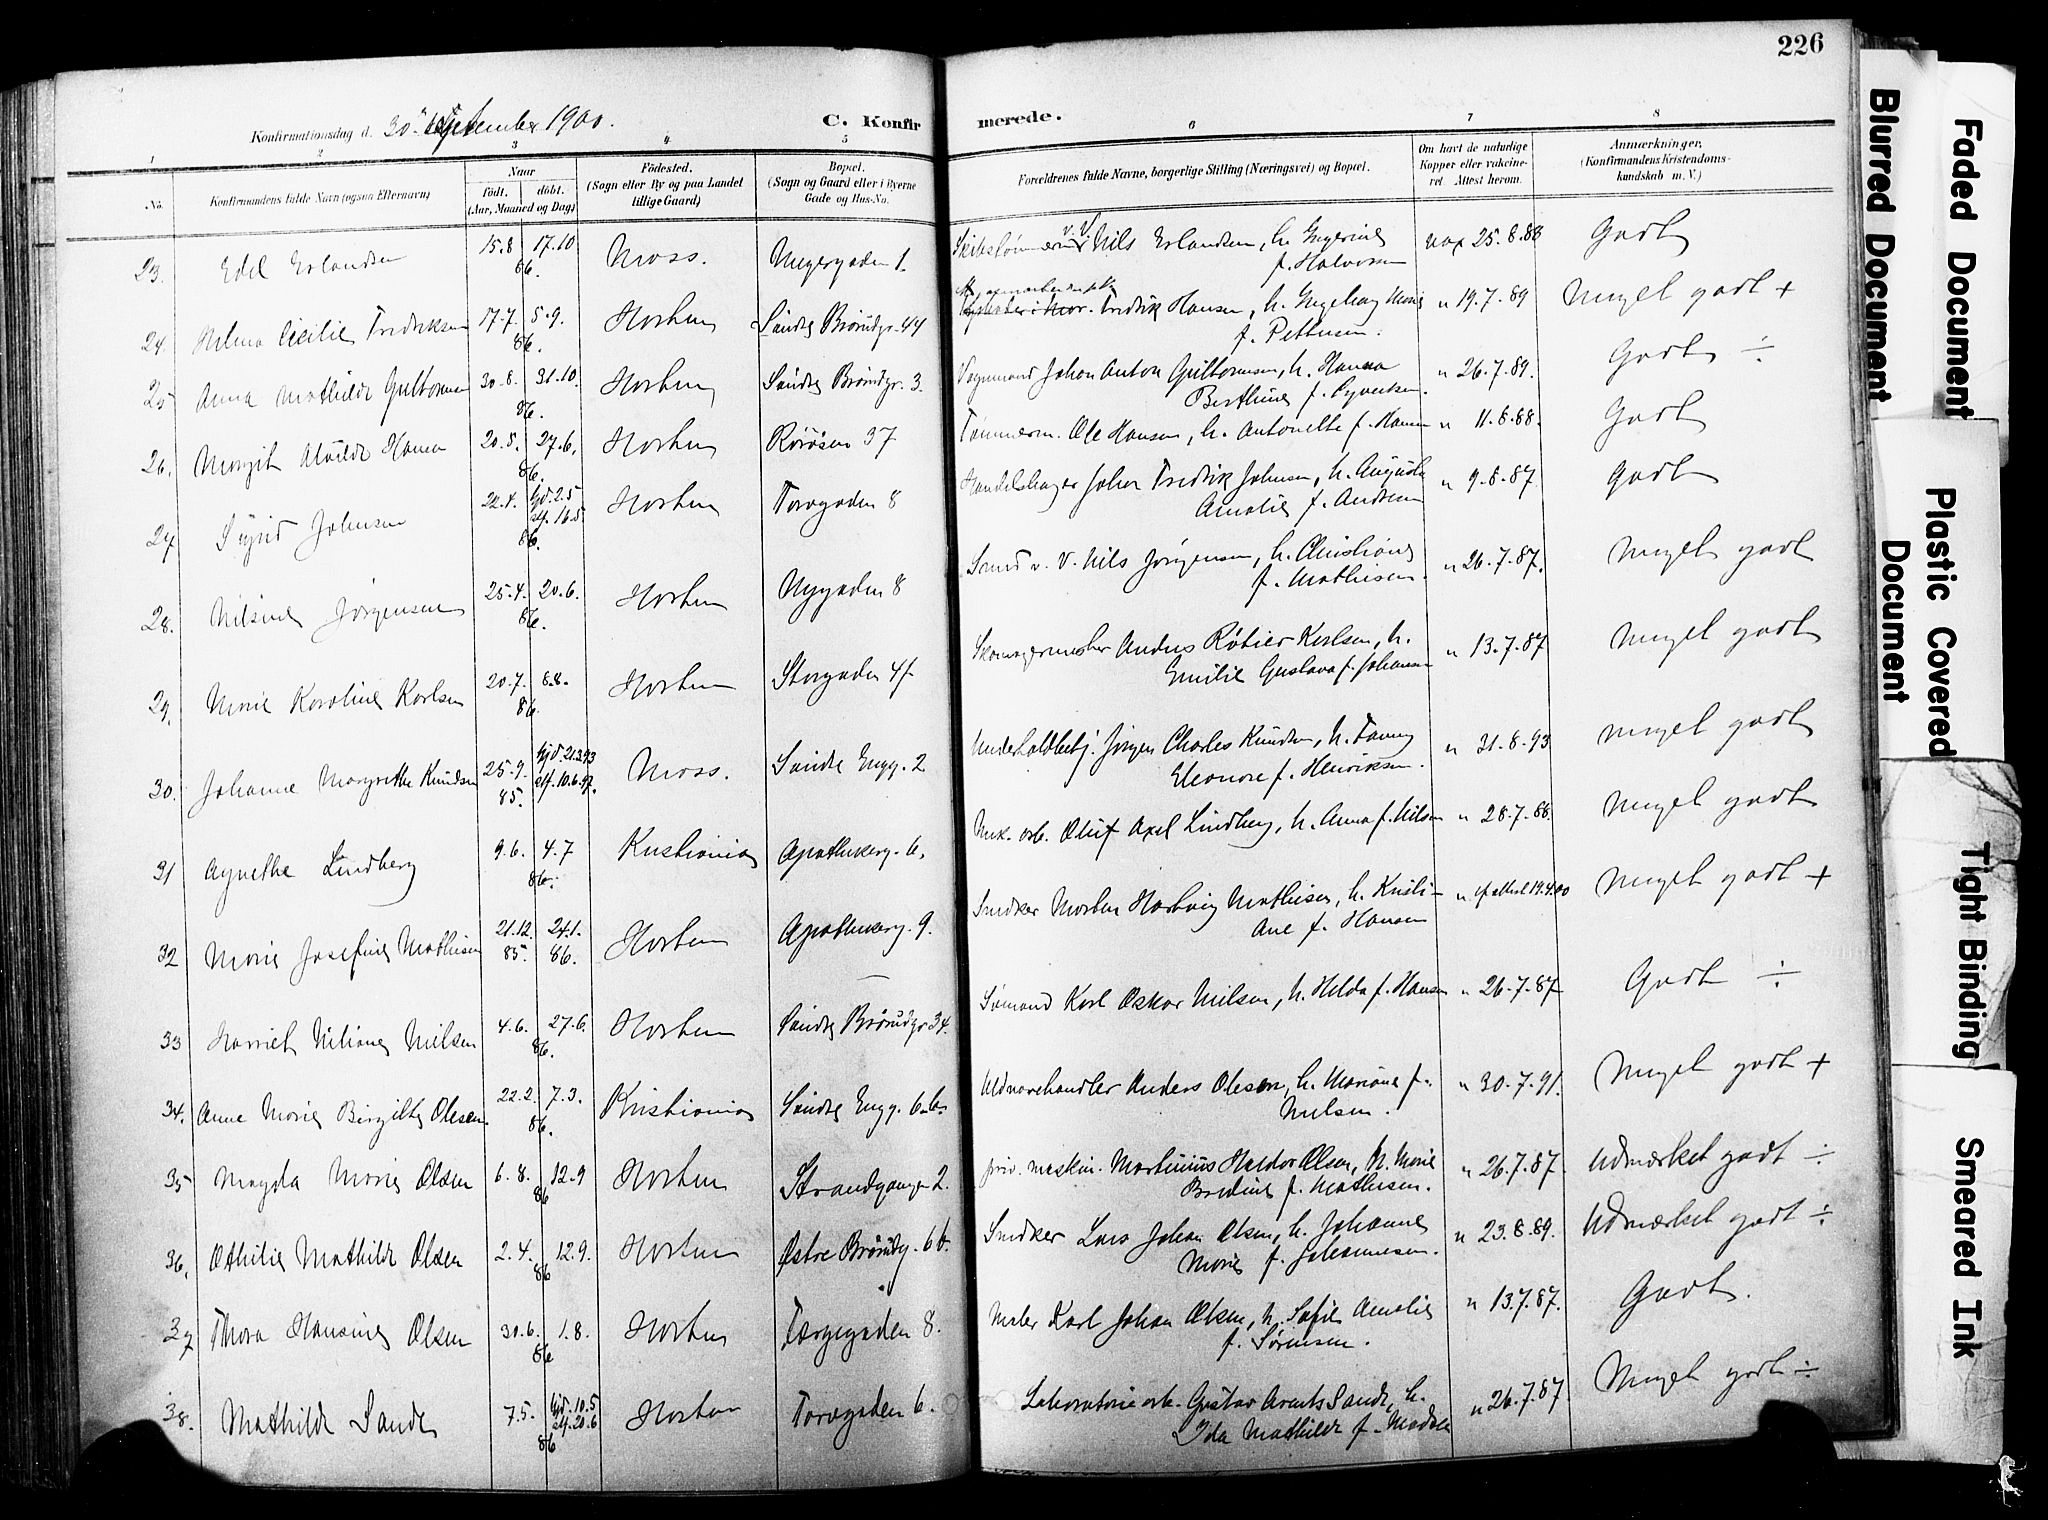 226
Konfirmationsdag d. 30. September 1900.
C. Konfirmerede.
1 2 3 4 5 6 7 8
No.
Konfirmandens fulde Navn (ogsaa Efternavn)
Naar
født. døbt.
(Aar, Maaned og Dag)
Fødested.
(Sogn eller By og paa Landet
tillige Gaard)
Bopæl.
(Sogn og Gaard eller i Byerne
Gade og Hus-No.
Forældrenes fulde Navne, borgerlige Stilling (Næringsvei) og Bopæl.
Om havt de naturlige
Kopper eller vakcine-
ret. Attest herom.
Anmærkninger,
(Konfirmandens Kristendoms-
kundskab m. V.)
23. Edel Erlandsen 15.8 17.10 86. Moss. 1. v. V. Nils Erlandsen, h. Ingerine vax 25.8.88 Godt
f. Halvorsen
24. Helma Cecilie Fredriksen 17.7. 5.9. 86. Horten Søndre Brårudgr. 44 Fredrik Hansen, h. Ingeborg Marie " 19.7.89 Meget godt +
f. Pettersen.
25 Anna Mathilde Guttormsen 30.8. 31.10. 86. Horten Søndre Brårudgr. 3. Vognmand Johan Anton Guttormsen, h. Hanna " 26.7.89. Godt ÷
Berthine f. Syvertsen.
26. Margit Alvilde Hansen 20.5. 27.6. 86. Horten Røråsen 37 Tømmerm. Ole Hansen, h. Antonette f. Hansen " 11.8.88. Godt
27 Sigrid Johnsen 22.4. Hjd. 2.5 stf. 16.5 86. Horten Torvegaden 8 Johan Fredrik Johnsen, h. Augusta " 9.8.87. Godt
Amalie f. Andersen
28. Nilsine Jørgensen 25.4. 20.6. 86. Horten Nygaden 8 Smed v. V. Nils Jørgensen, h. Christiane " 26.7.87. Meget godt
f. Mathisen.
29. Marie Karoline Karlsen 20.7. 8.8. 86. Horten Storgaden 41 Skomagermester Anders Karlsen, h. " 13.7.87 Meget godt
Emilie Gustava f. Johansen
30. Johanne Margrethe Knudsen 25.9. 85. Hjd. 21.3.93 stf. 10.6. Moss. Søndre Engg. 2 Jørgen Charles Knudsen, h. Fanny " 31.8.93 Meget godt
Eleonore f. Henriksen.
31 Agnethe Lindberg 9.6. 4.7 86. Kristiania Apothekerg. 6. Mek. arb. Oluf Axel Lindberg, h. Anna f. Nilsen " 28.7.88. Meget godt
32 Marie Josefine Mathisen 21.12. 85. 24.1. 86. Horten Apothekerg. 9. Snedker Morten Hartvig Mathisen, h. Kristi- " 19.4.00 Meget godt +
ane f. Hansen
33 Harriet Nilsen 4.6. 27.6. 86. Horten Søndre Brårudgr 34. Sømand Karl Oskar Nilsen, h. Hilda f. Hansen " 26.7.87 Godt ÷
34. Anne Marie Birgitte Olesen. 22.2. 7.3. 86. Kristiania Søndre Engg. 6 Uldvarehandler Anders Olesen, h. Mariane f. " 30.7.91. Meget godt +
Nielsen.
35 Magda Marie Olsen 6.8. 12.9 86 Horten Strandgangen 2. priv. maskin. Martinius Haldor Olsen, h. Marie " 26.7.87. Udmærket godt ÷
Bredine f. Mathisen.
36. Othilie Mathilde Olsen 2.4. 12.9. 86 Horten Østre Brårudg. 6 b. Snedker Lars Johan Olsen, h. Johanne " 23.8.89. Udmærket godt ÷
Marie f. Johannesen.
37 Thora Hansine Olsen 30.6. 1.8. 86 Horten Færgegaden 8. Maler Karl Johan Olsen, h. Sofie Amalie " 13.7.87. Godt.
f. Sørensen.
38. Mathilde Sande 7.5. Hjd. 10.5 stf. 20.6 86 Horten Torvegaden 6. Laboratorie arb. Gustav Arents Sande, h. " 26.7.87 Meget godt ÷
Ida Mathilde f. Madsen
Faded Document
Blurred Document
Plastic Covered
Document
Tight Binding
Smeared Ink